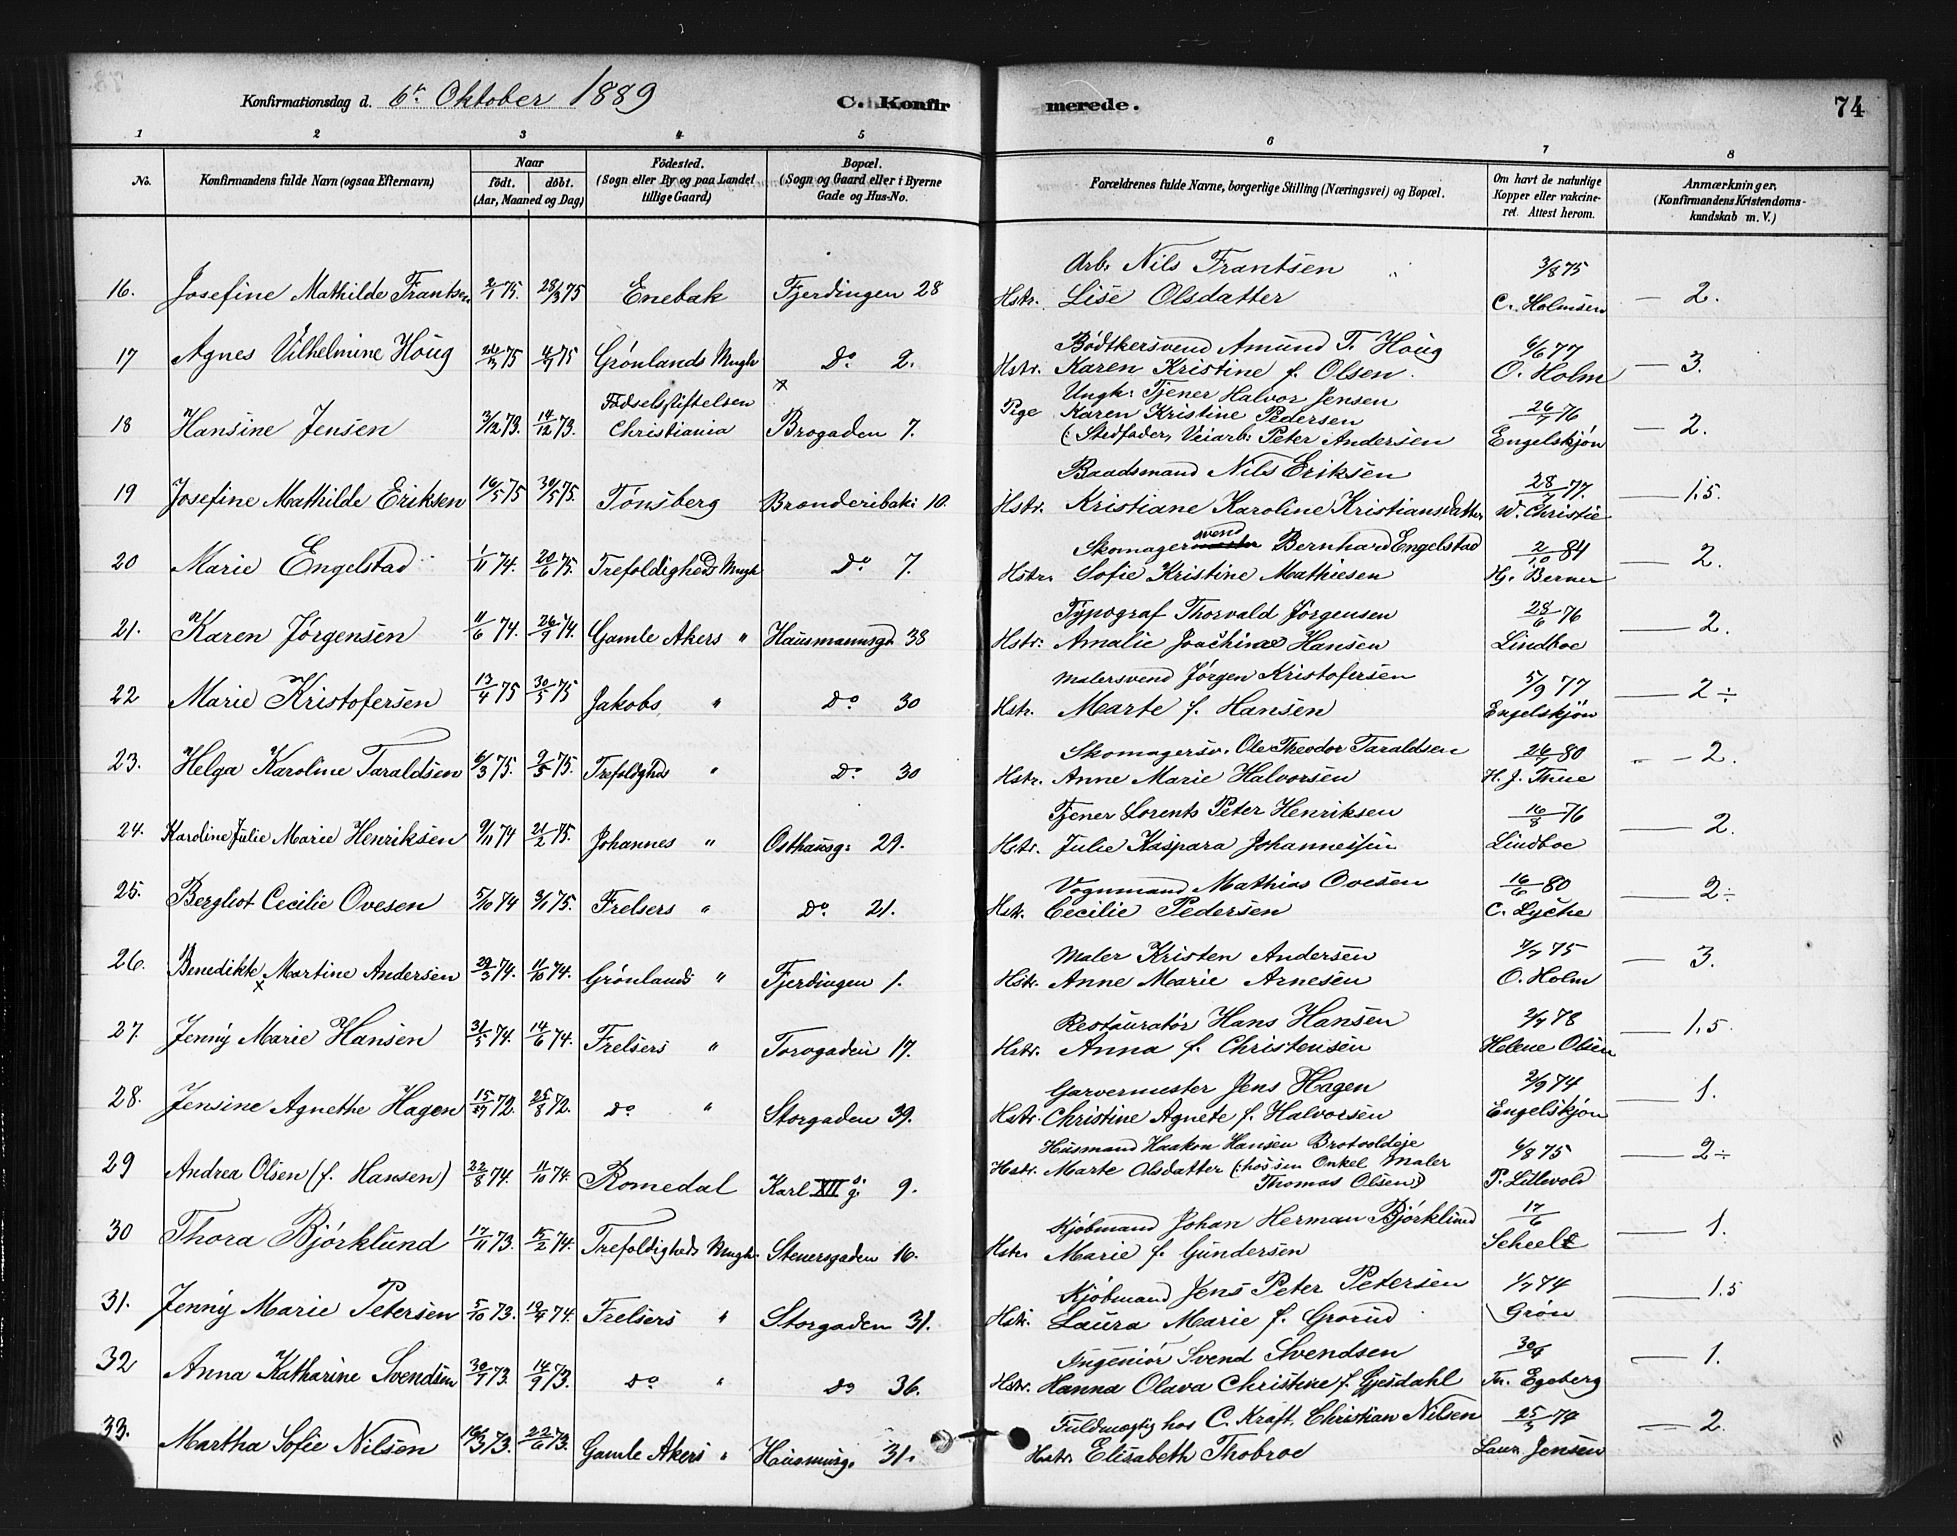 Konfirmationsdag d. 6te Oktober 1889 C. Konfirmerede. 74
1 2 3 4 5 6 7 8
No. Konfirmandens fulde Navn (ogsaa Efternavn) Naar født. døbt. (Aar, Maaned og Dag) Födested. (Sogn eller By og paa Landet tillige Gaard) Bopæl. (Sogn og Gaard eller i Byerne Gade og Hus-No. Forældrenes fulde Navne, borgerlige Stilling (Næringsvei) og Bopæl. Om havt de naturlige Kopper eller vakcineret. Attest herom. Anmærkninger. (Konfirmandens Kristendomskundskab m. V.)
Arb. Nils Frantsen 3/8 75
16. Josefine Mathilde Frantsen 2/1 75. 28/3 75 Enebak Fjerdingen 28 Hstr. Lise Olsdatter C. Holmsen 2.
Bødtkersvend Amund T. Houg 6/6 77
17 Agnes Vilhelmine Houg 75 75 Grønlands Mngh Do 2. Hstr. Karen Kristine f. Olsen. O. Holm 3.
Ungk. Tjener Halvor Jensen
18 Hansine Jensen 3/12 73. 14/12 73. Fødselsstiftelsen Christiania Brogaden 7. Pige Karen Kristine Pedersen 26/7 76
(: Stedfader, Veiarb: Peter Andersen Engelskjøn 2.
Baadsmand Nils Eriksen 28/7 77.
19 Josefine Mathilde Eriksen 16/5 75 30/5 75. Tønsberg Brænderibak: 10. Hstr. Kristiane Karoline Kristiansdatter W. Christie 1,5.
Skomagersvend Bernhard Engelstad 2/10 84
20 Marie Engelstad 1/11 74. 20/6 75. Trefoldigheds Mngh Do 7. Hstr. Sofie Kristine Mathiesen Hj. Berner 2.
Typograf Thorvald Jørgensen 28/6 76
21. Karen Jørgensen 11/6 74. 26/9 74. Gamle Akers " Hausmannsgd 38 Hstr: Amalie Joachine Hansen Lindboe 2.
Malersvend Jørgen Kristofersen 5/9 77
22 Marie Kristofersen 13/4 75 30/5 75 Jakobs " Do 30 Hstr. Marte f. Hansen Engelskjøn 2÷
Skomagersv. Ole Theodor Taraldsen 80
23. Helga Karoline Taraldsen 6/3 75. 9/5 75. Trefolighd " Do 30 Hstr. Anne Marie Halvorsen H. J. Thue 2.
Tjener Lorents Peter Henriksen 16/8 76
24. Karoline Julie Marie Henriksen 9/11 74 21/2 75. Johannes " Osthausg: 29. Hstr. Julie Kaspara Johannessen Lindboe 2.
Vognmand Mathias Ovesen 16/6 80
25. Bergliot Cecilie Ovesen 5/10 74 75. Frelsers " Do 21. Hstr. Cecilie Pedersen C. Lyche 2÷
Maler Kristen Andersen 75
26. Benedikte Martine Andersen 29/3 74. 11/10 74. Grønlands " Fjerdingen 1. Hstr. Anne Marie Arnesen O. Holm 3.
Restauratør Hans Hansen 2/7 78
27. Jenny Marie Hansen 31/5 74. 14/6 74. Frelsers " Torvgaden 17. Hstr. Anna f. Christensen Helene Olsen 1,5.
Garvermester Jens Hagen 2/9 74
28. Jensine Agnethe Hagen 72. 25/8 72. do " Storgaden 39. Hstr. Christine Agnete f. Halvorsen Engelskjøn 1.
Husmand Haakon Hansen Brotvoldeje 6/8 75
29 Andrea Olsen (f. Hansen) 22/8 74. 11/10 74. Romedal Karl XII's g. 9. Hstr. Marte Olsdatter (: hos sin Onkel Maler Thomas Olsen :) P. Lillevold 2÷
Kjøbmand Johan Herman Bjørklund 17/6
30 Thora Bjørklund 17/11 73. 15/2 74. Trefoldigheds Mngh. Stenersgaden 16. Hstr. Marie f. Gundersen Scheel 1.
Kjøbmand Jens Peter Petersen 1/7 74
31. Jenny Marie Petersen 5/10 73. 74. Frelsers " Storgaden 31. Hstr. Laura Marie f. Grorud Grøn 1,5
Ingeniør Svend Svendsen
32 Anna Katharine Svendsen 30/7 73. 14/9 73. do " do 36. Hstr. Hanna Olava Christine f. Gjesdahl Th. Egeberg 1.
Fuldmægtig hos C. Kraft. Christian Nilsen 74
33. Martha Sofie Nilsen 16/3 73. 22/6 73. Gamle Akers " Hausmnsg. 31. Hstr. Elisabeth Thobroe Laur. Jensen 2.